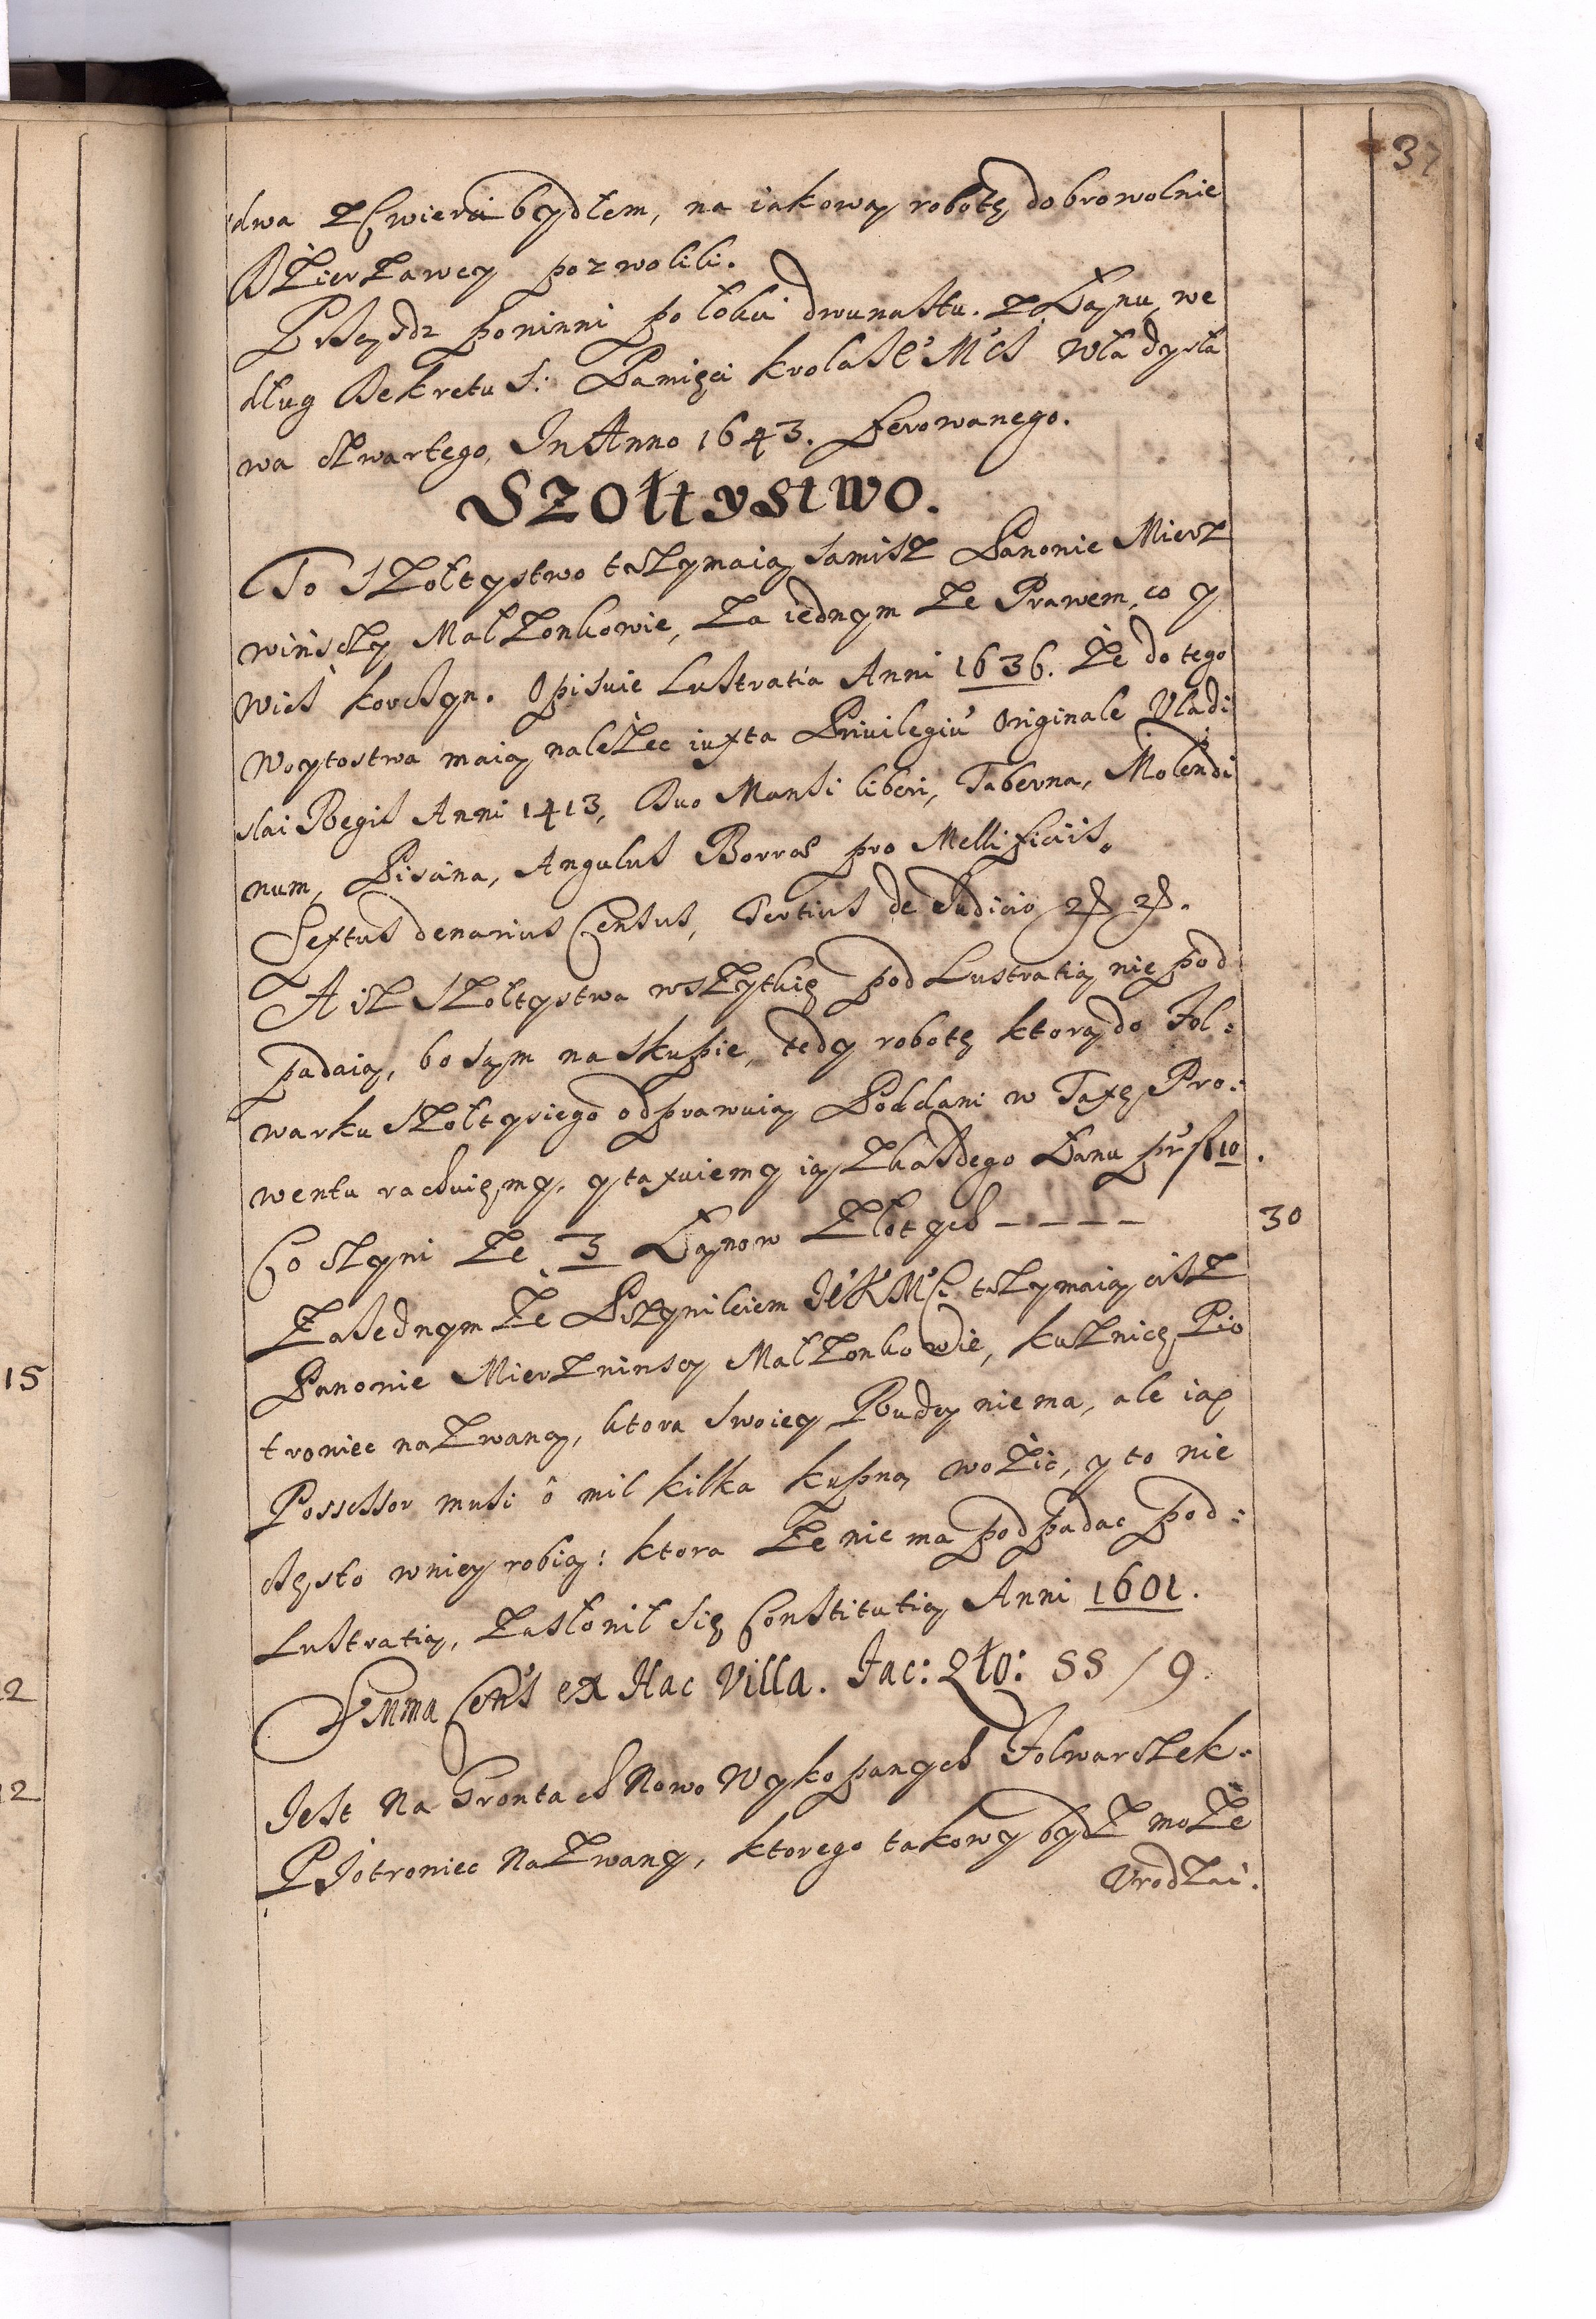 37
dwa z Cwierci bydłem, na iakową robotę dobrowolnie
Dzierzawcy pozwolili.
Prząsdz powinni po łokci dwunastu. z Łanu, we
dług Dekretu S: Pamięci Krola JE° Mci Władysła
wa czwartego, In Anno 1643. Ferowanego.
Szołtystwo.
To Szołtystwo trzymaią samisz Panowie Mierz
winscy Małzonkowie, za iednym ze Prawem, co y
Wies Korczyn. Opisuie Lustratia Anni 1636. Ze do tego
Woytostwa maią nalezec iuxta Privilegiu Originale Vladi
slai Regis Anni 1413, Duo Mansi liberi, Taberna, Molendi
num, Piscina, Angulus Borras pro Mellificiis.
Sextus denarius Census, Tertius de Iudicio
A isz Szołtystwa wszytkie pod Lustratią nie pod
padaią, bo są m na skupie, tedy robotę ktorą do Fol:
warku Szołtysiego odprawuią Poddani w Taxę Pro:
wentu rachuięmy. y taxuiemy ią z kazdego Łanu pr fl 10.
Co czyni ze 3 Łanow Złotych – – – – 30
Za Iednym ze Przywileiem JE° K M Ci trzymaią cisz
Panowie Mierzwinscy Małzonkowie, Kuznicę Pio
troniec nazwaną, ktora swoiey Rudy niema, ale ią
Possessor musi o mil kilka kupną wozic, y to nie
często w niey robią: ktora ze nie ma podpadac pod:
Lustratią, zasłonił się Constitutią Anni 1601.
Summa Cens ex Hac Villa. Fac: Zło: 55 / 9.
Jest Na Grontach Nowo Wykopanych Folwarszek.
Piotroniec Nazwany, ktorego takowy bydz moze
Urodzai.
15
2
12